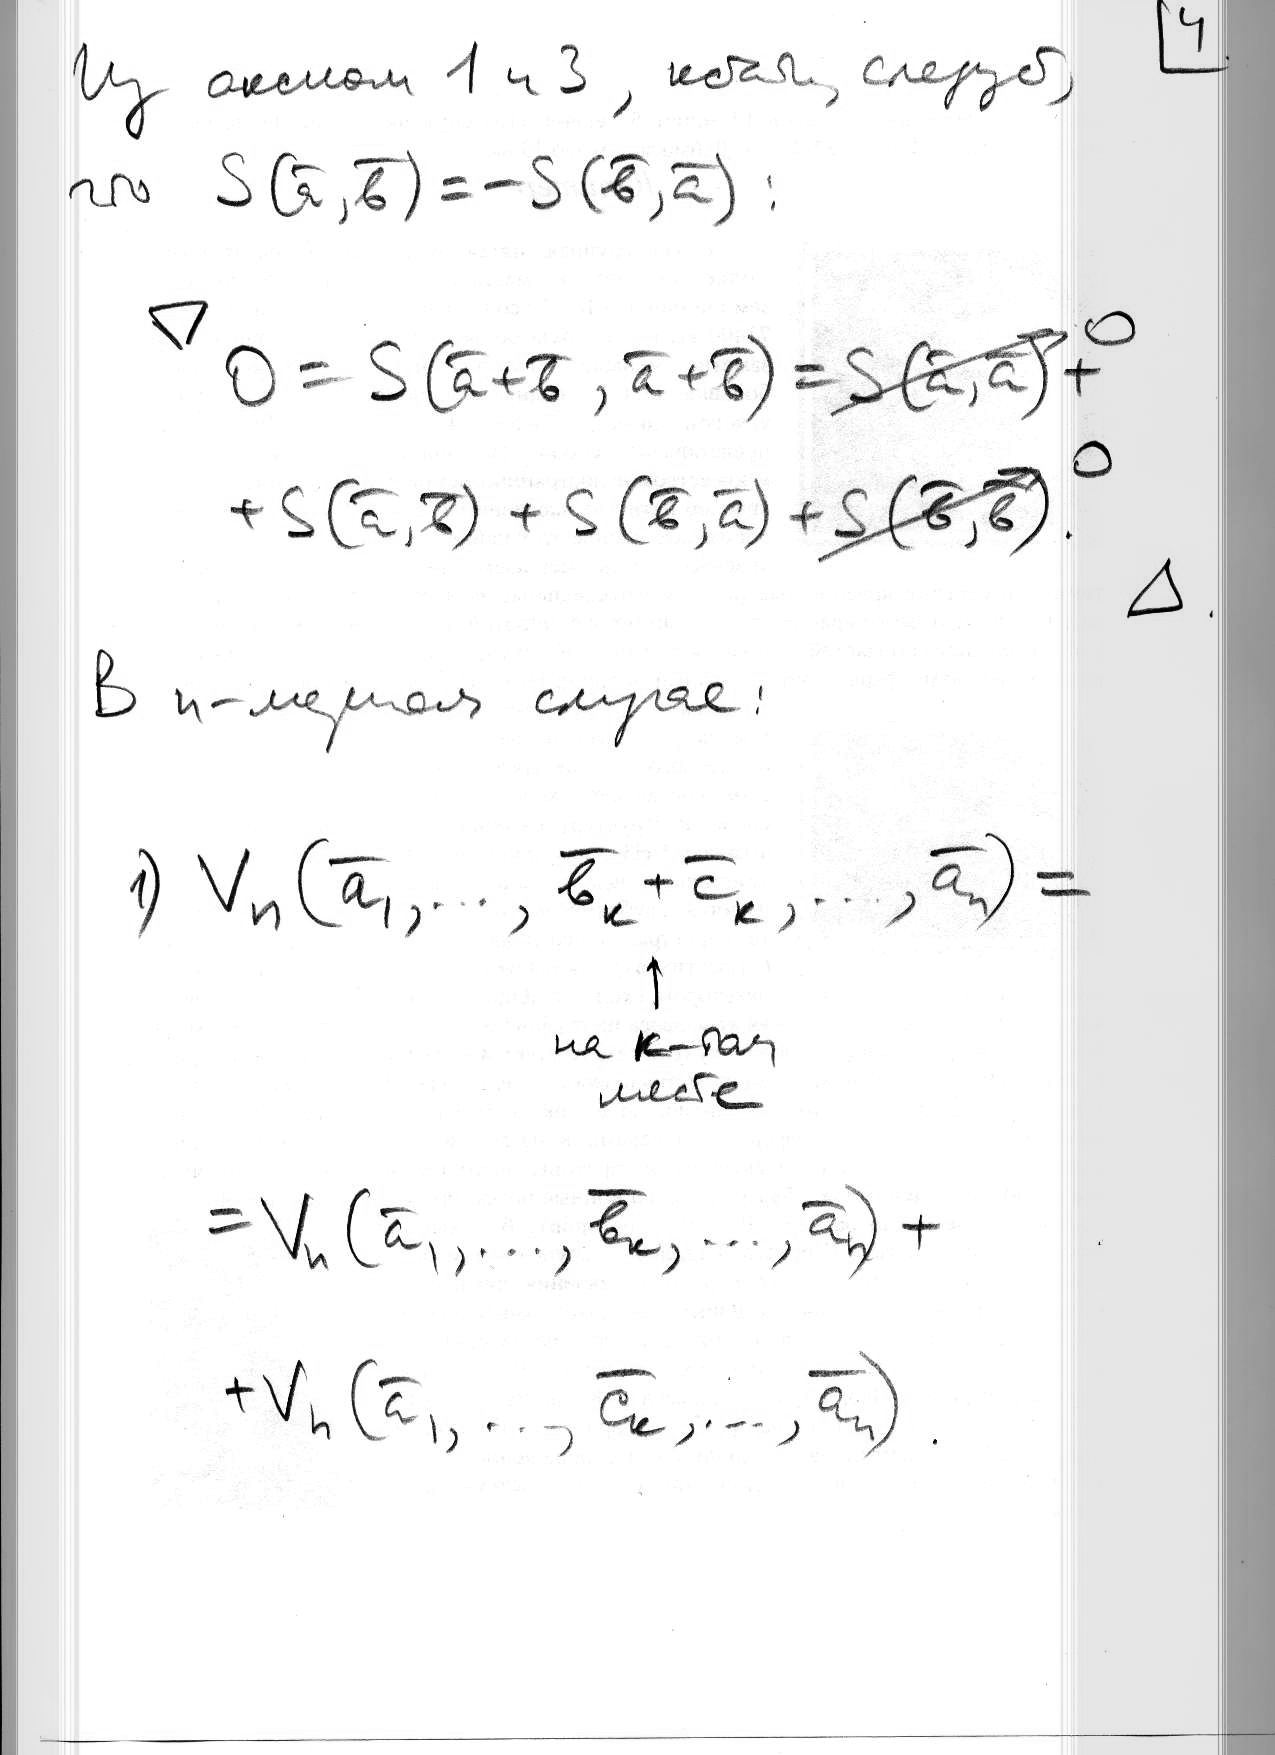 4
Из аксиом 1 и 3, кстати, следует,
что S(a̅, b̅) = -S(b̅, a̅):
▽ 0 = S(a̅+b̅, a̅+b̅) = S(a̅, a̅)⁰ +
+ S(a̅, b̅) + S(b̅, a̅) + S(b̅, b̅)⁰.
△.
В n-мерном случае:
1) Vₙ(a̅₁, ..., b̅ₖ + c̅ₖ, ..., a̅ₙ) =
↑
на k-том
месте
= Vₙ(a̅₁, ..., b̅ₖ, ..., a̅ₙ) +
+ Vₙ(a̅₁, ..., c̅ₖ, ..., a̅ₙ).